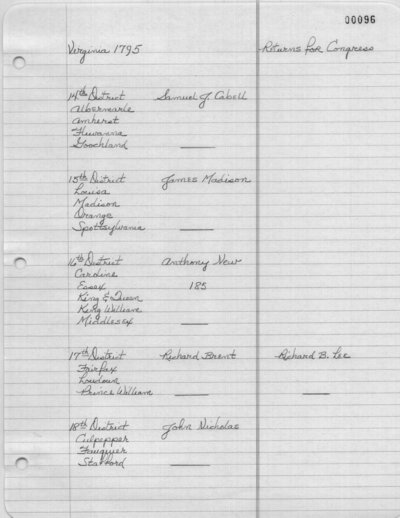 00096
Virginia 1795 Returns for Congress
14th District Samuel J. Cabell
Albermarle
Amherst
Fluvanna
Goochland
15th District James Madison
Louisa
Madison
Orange
Spottsylvania
16th District Anthony New
Caroline
Essex 185
King & Queen
King William
Middlesex
17th District Richard Brent Richard B. Lee
Fairfax
Loudoun
Prince William
18th District John Nicholas
Culpepper
Fauquier
Stafford